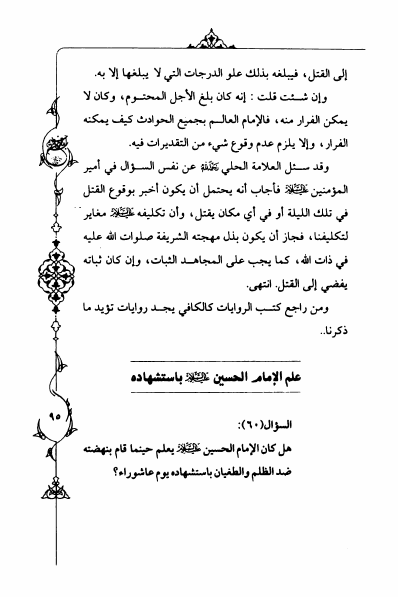 إلى القتل، فيبلغه بذلك علو الدرجات التي لا يبلغها إلا به.
وإن شئت قلت : إنه كان بلغ الأجل المحتوم، وكان لا
يمكن الفرار منه، فالإمام العالم بجميع الحوادث كيف يمكنه
الفرار، وإلا يلزم عدم وقوع شيء من التقديرات فيه.
وقد سئل العلامة الحلي رحمه الله عن نفس السؤال في أمير
المؤمنين عليه السلام فأجاب أنه يحتمل أن يكون أخبر بوقوع القتل
في تلك الليلة أو في أي مكان يقتل، وأن تكليفه عليه السلام مغاير
لتكليفنا، فجاز أن يكون بذل مهجته الشريفة صلوات الله عليه
في ذات الله، كما يجب على المجاهد الثبات، وإن كان ثباته
يفضي إلى القتل. انتهى.
ومن راجع كتب الروايات كالكافي يجد روايات تؤيد ما
ذكرنا..
علم الإمام الحسين عليه السلام باستشهاده
٩٥
السؤال(٦٠):
هل كان الإمام الحسين عليه السلام يعلم حينما قام بنهضته
ضد الظلم والطغيان باستشهاده يوم عاشوراء؟